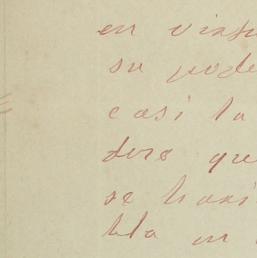 en virtu
su pode
casi la
dero que
se hasi
lda en